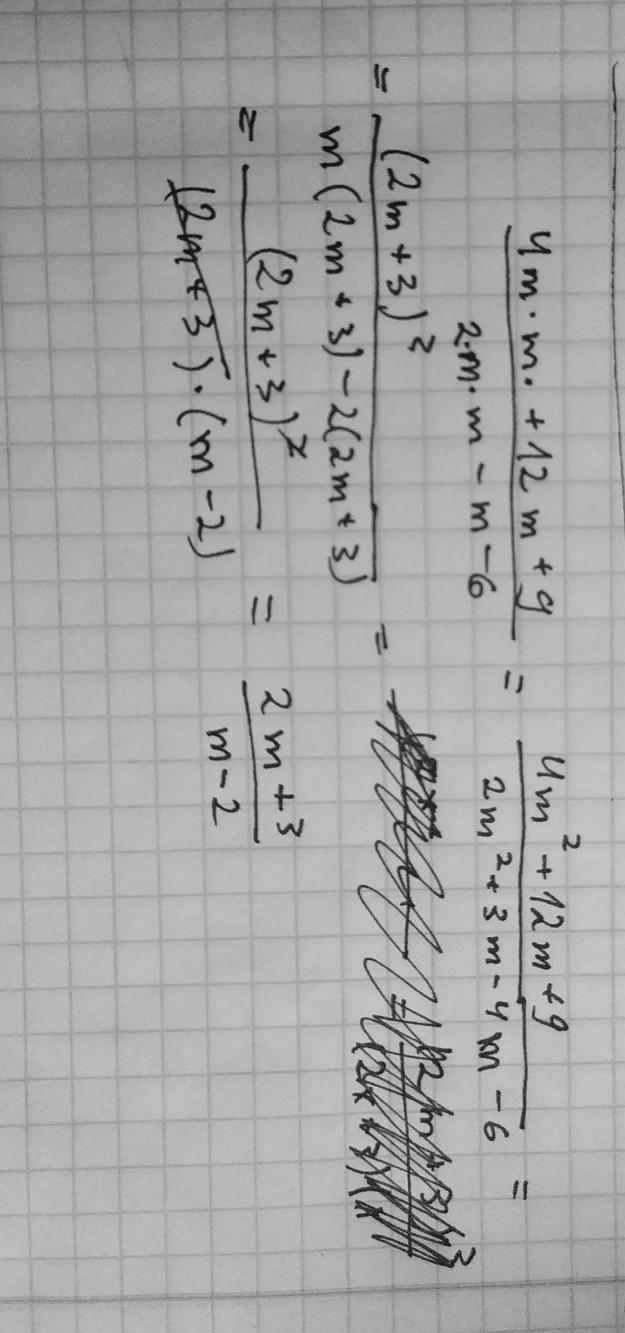 (4m·m·+12m+9)/(2·m·m-m-6) = (4m²+12m+9)/(2m²+3m-4m-6) =
= (2m+3)²/(m(2m+3)-2(2m+3)) =
= (2m+3)²/((2m+3)·(m-2)) = (2m+3)/(m-2)